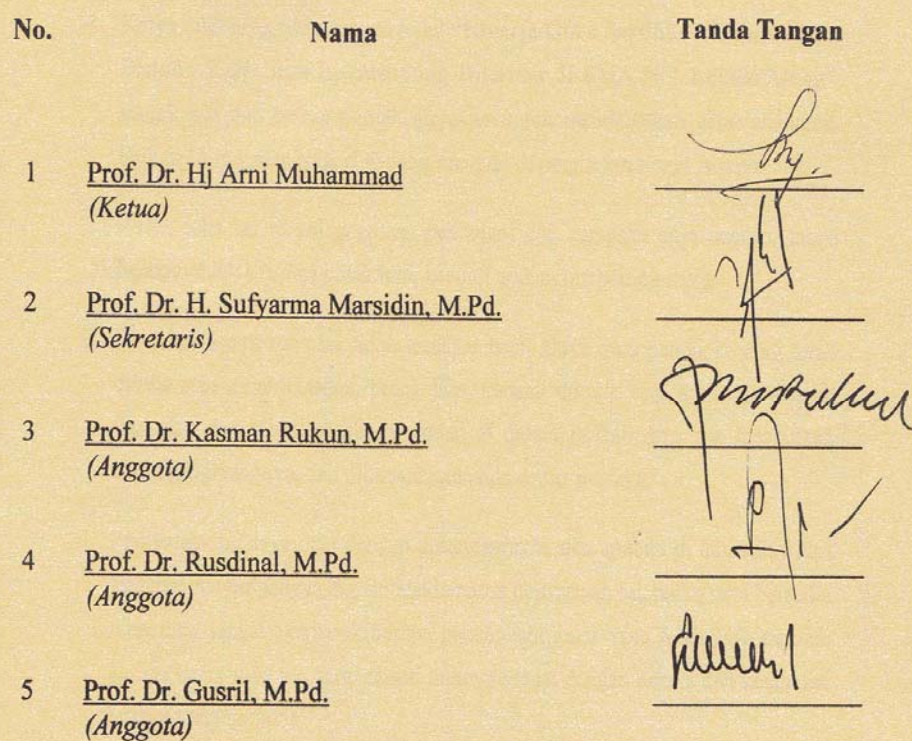 No. Nama Tanda Tangan
1 Prof. Dr. Hj Arni Muhammad
(Ketua)
2 Prof. Dr. H. Sufyarma Marsidin, M.Pd.
(Sekretaris)
3 Prof. Dr. Kasman Rukun, M.Pd.
(Anggota)
4 Prof. Dr. Rusdinal, M.Pd.
(Anggota)
5 Prof. Dr. Gusril, M.Pd.
(Anggota)